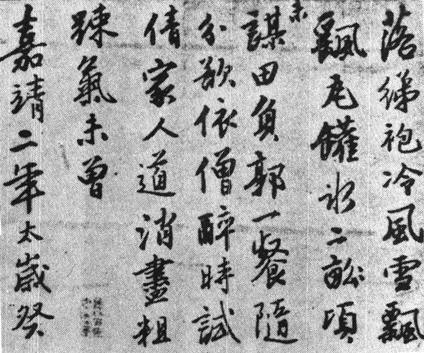 落綈袍冷風雪飄
飄瓦罐冰二畝頃
未
謀田負郭一餐隨
分欲依僧醉時試
倩家人道消盡粗
疎氣未曾
嘉靖二年太歲癸